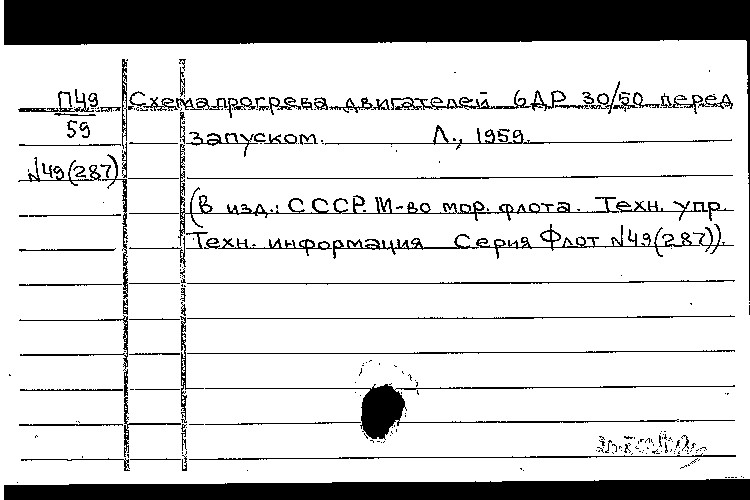 П49
59
№49(287)
Схема прогрева двигателей 6ДР 30/50 перед
запуском. Л., 1959.
(В изд.: СССР. М-во мор. флота. Техн. упр.
Техн. информация Серия Флот №49(287)).